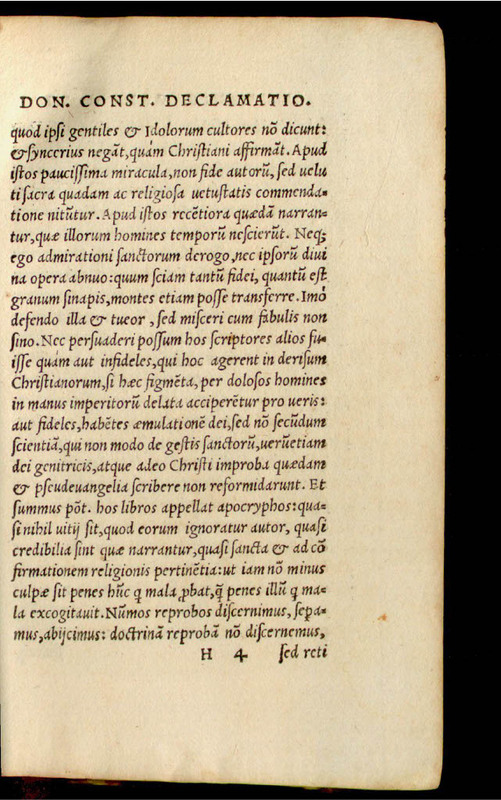 DON. CONST. DECLAMATIO.
quod ipsi gentiles & Idolorum cultores nõ dicunt:
& syncerius negãt, quàm Christiani affirmãt. Apud
istos paucissima miracula, non fide autorũ, sed uelu
ti sacra quadam ac religiosa uetustatis commenda-
tione nitũtur. Apud istos recẽtiora quædã narran-
tur, quæ illorum homines temporũ nescierũt. Neq;
ego admirationi sanctorum derogo, nec ipsorũ diui
na opera abnuo: quum sciam tantũ fidei, quantũ est
granum sinapis, montes etiam posse transferre. Imò
defendo illa & tueor, sed misceri cum fabulis non
sino. Nec persuaderi possum hos scriptores alios fu-
isse quàm aut infideles, qui hoc agerent in derisum
Christianorum, si hæc figmẽta, per dolosos homines
in manus imperitorũ delata acciperẽtur pro ueris:
aut fideles, habẽtes æmulationẽ dei, sed nõ secũdum
scientiã, qui non modo de gestis sanctorũ, uerũetiam
dei genitricis, atque adeo Christi improba quædam
& pseudeuangelia scribere non reformidarunt. Et
summus põt. hos libros appellat apocryphos: qua-
si nihil uitij sit, quod eorum ignoratur autor, quasi
credibilia sint quæ narrantur, quasi sancta & ad cõ
firmationem religionis pertinẽtia: ut iam nõ minus
culpæ sit penes hũc q mala ꝓbat, q̃ penes illũ q ma-
la excogitauit. Nũmos reprobos discernimus, sepa-
mus, abijcimus: doctrinã reprobã nõ discernemus,
H 4 sed reti